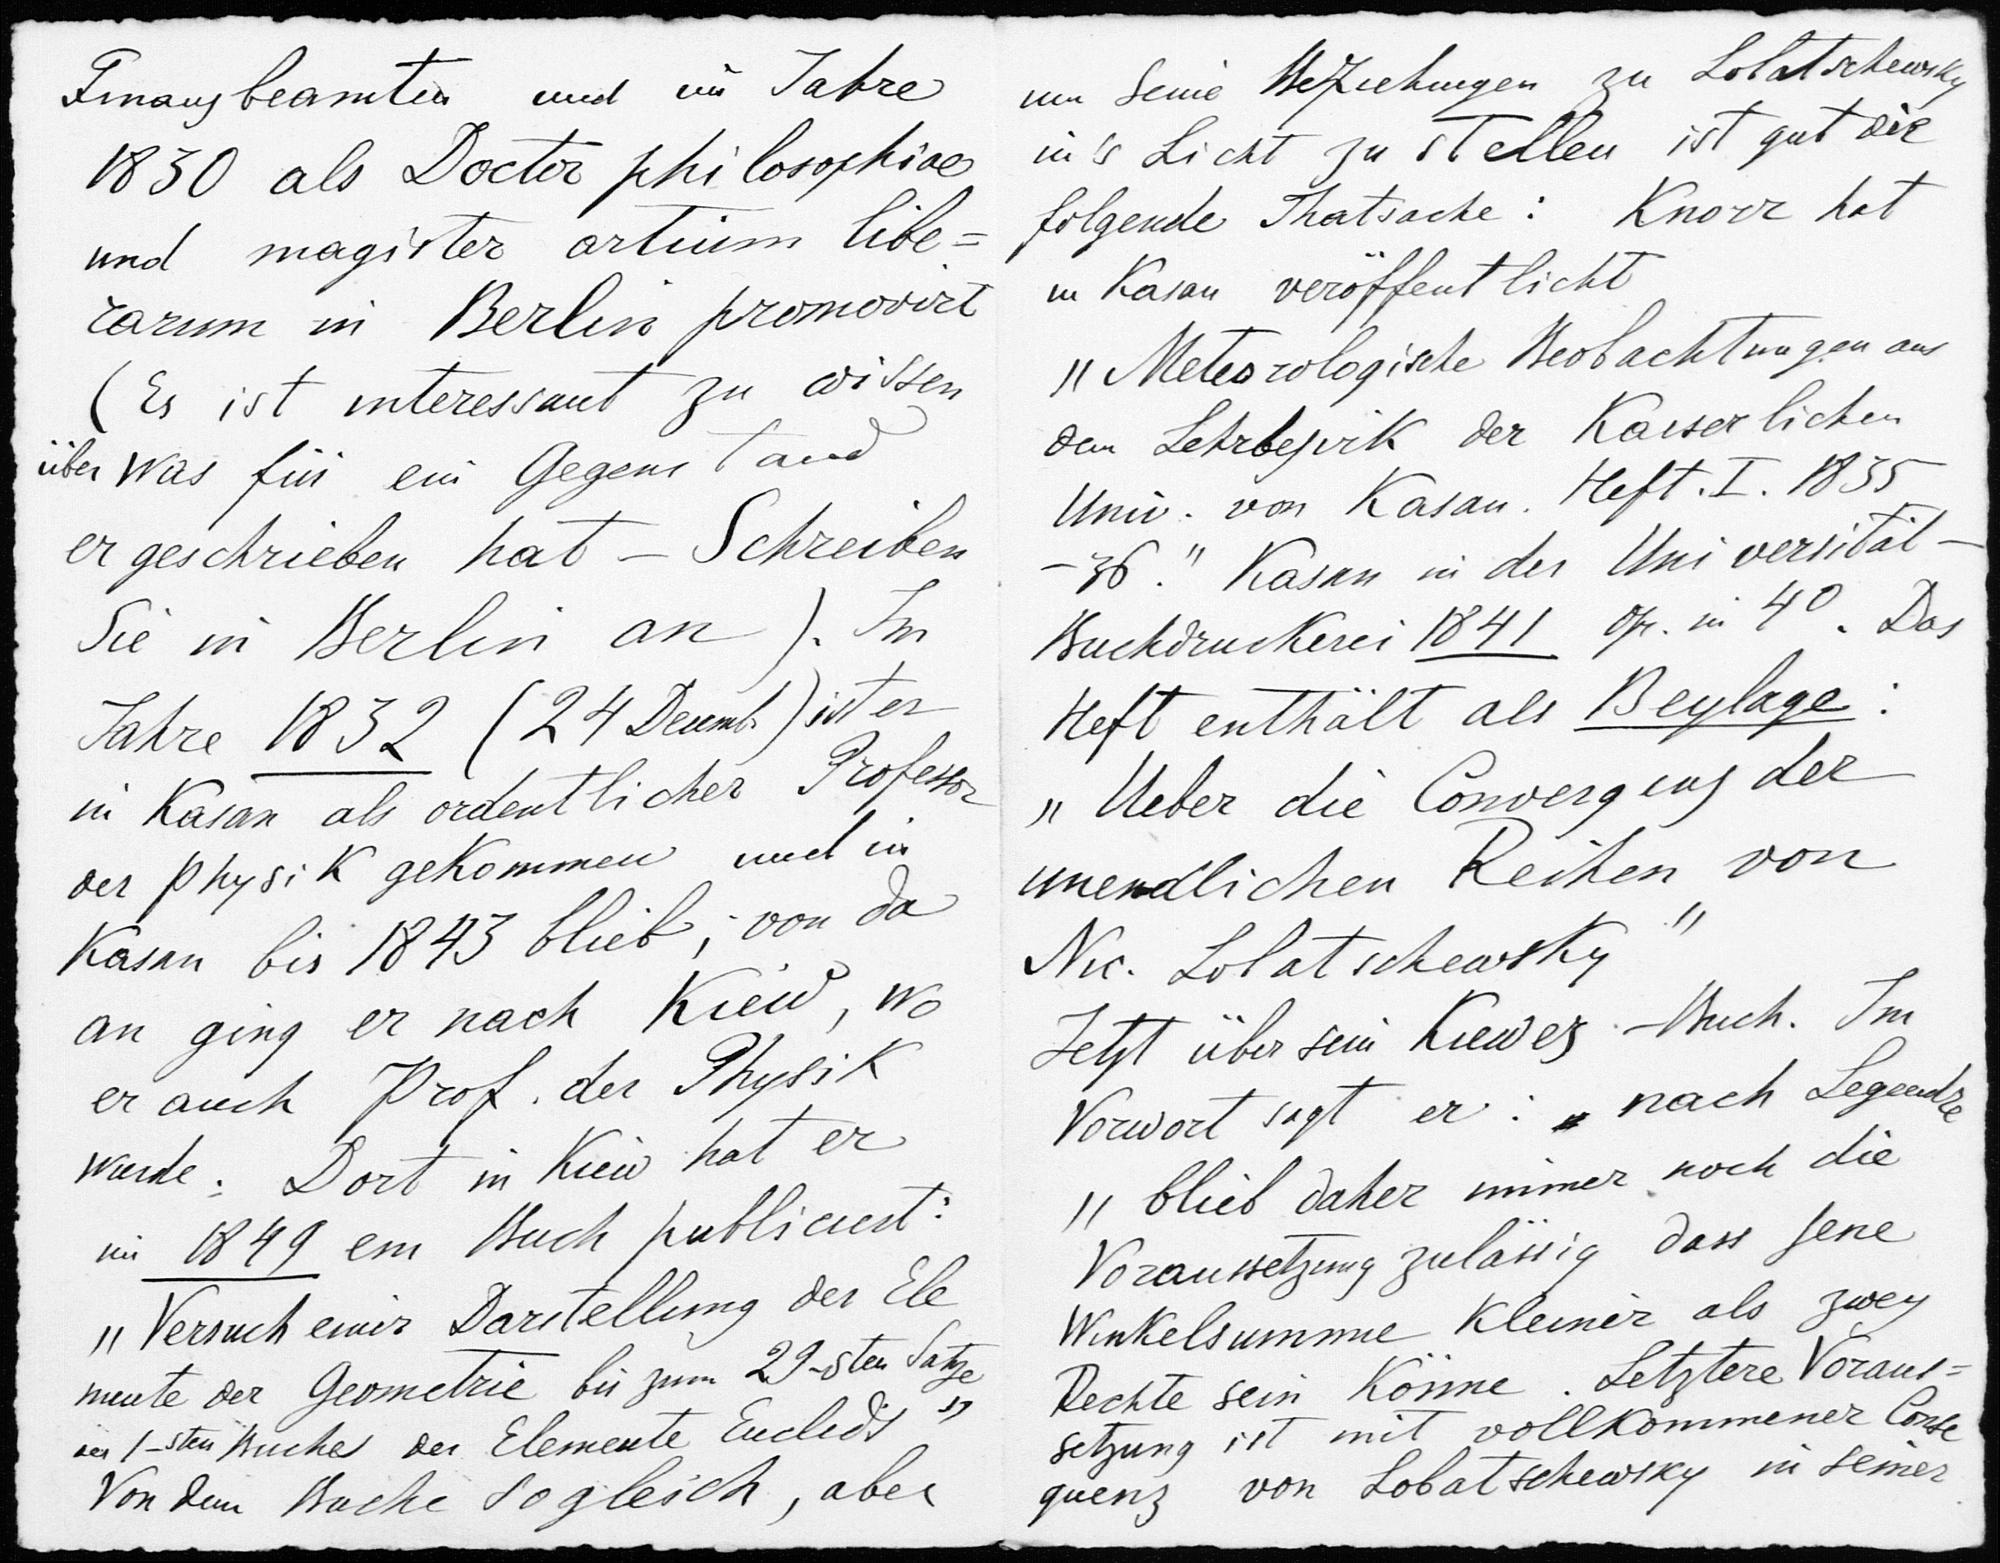 Finanzbeamten und im Jahre
1830 als Doctor philosophiae
und magister artium libe=
rarum in Berlin promovirt
(Es ist interessant zu wissen
über was für ein Gegenstand
er geschrieben hat – Schreiben
Sie in Berlin an). Im
Jahre 1832 (24 Decemb.) ist er
in Kasan als ordentlicher Professor
der Physik gekommen und in
Kasan bis 1843 blieb; von da
an ging er nach Kiew, wo
er auch Prof. der Physik
wurde. Dort in Kiew hat er
im 1849 ein Buch publiciert:
„Versuch einer Darstellung der Ele
mente der Geometrie bis zum 29-sten Satze
des 1-sten Buches der Elemente Euclids"
Von dem Buche sogleich, aber
um seine Beziehungen zu Lobatschewsky
in's Licht zu stellen ist gut die
folgende Thatsache: Knorr hat
in Kasan veröffentlicht
„Meteorologische Beobachtungen aus
dem Lehrbezirk der Kaiserlichen
Univ. von Kasan. Heft. I. 1835
–36." Kasan in der Universität–
Buchdruckerei 1841 op. in 4º. Das
Heft enthält als Beylage:
„Ueber die Convergenz der
unendlichen Reihen von
Nic. Lobatschewsky"
Jetzt über sein Kiewer –Buch. Im
Vorwort sagt er: „nach Legendre
„blieb daher immer noch die
Voraussetzung zulässig dass jene
Winkelsumme kleiner als zwey
Rechte sein könne. Letztere Voraus=
setzung ist mit vollkommener Conse
quenz von Lobatschewsky in seiner